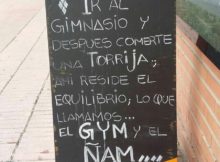 IR AL
GIMNASIO Y
DESPUES COMERTE
UNA TORRIJA;
AHÍ RESIDE EL
EQUILIBRIO; LO QUE
LLAMAMOS...
EL GYM Y EL
ÑAM....